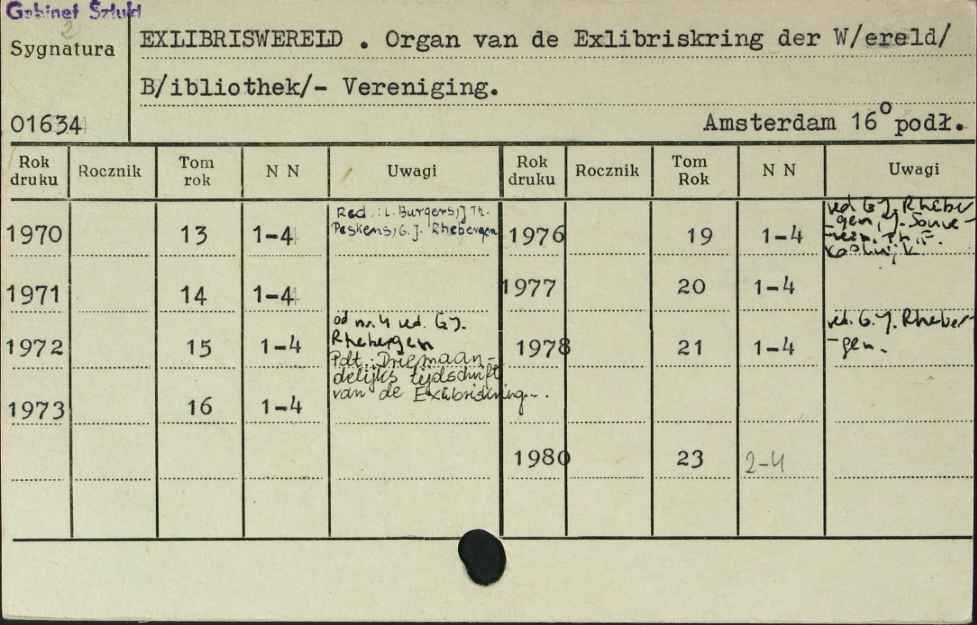 Gabinet Sztuki
2
Sygnatura
01634
EXLIBRISWERELD . Organ van de Exlibriskring der W/ereld/
B/ibliothek/- Vereniging.
Amsterdam 16° podł.
Rok druku Rocznik Tom rok N N Uwagi Rok druku Rocznik Tom Rok N N Uwagi
1970 13 1-4 Red.: L. Burgers, J Th.
Peskens, G.J. Rhebergen
1976 19 1-4 red. G.J. Rheber
gen, J. Sonne
1971 14 1-4
1977 20 1-4
1972 15 1-4 od nr. 4 red. G.J.
Rhebergen
Pdt.: Driemaan-
delijks tijdschrift
van de Exlibriskring..
1978 21 1-4 red. G.J. Rheber-
-gen.
1973 16 1-4
1980 23 2-4